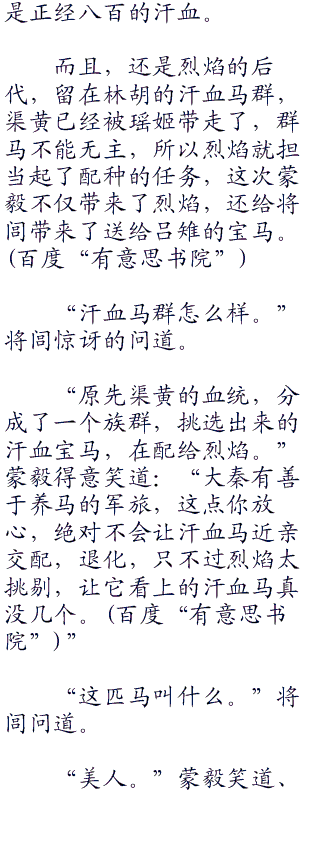 是正经八百的汗血。
而且，还是烈焰的后
代，留在林胡的汗血马群，
渠黄已经被瑶姬带走了，群
马不能无主，所以烈焰就担
当起了配种的任务，这次蒙
毅不仅带来了烈焰，还给将
闾带来了送给吕雉的宝马。
(百度“有意思书院”)
“汗血马群怎么样。”
将闾惊讶的问道。
“原先渠黄的血统，分
成了一个族群，挑选出来的
汗血宝马，在配给烈焰。”
蒙毅得意笑道：“大秦有善
于养马的军旅，这点你放
心，绝对不会让汗血马近亲
交配，退化，只不过烈焰太
挑剔，让它看上的汗血马真
没几个。(百度“有意思书
院”)”
“这匹马叫什么。”将
闾问道。
“美人。”蒙毅笑道、